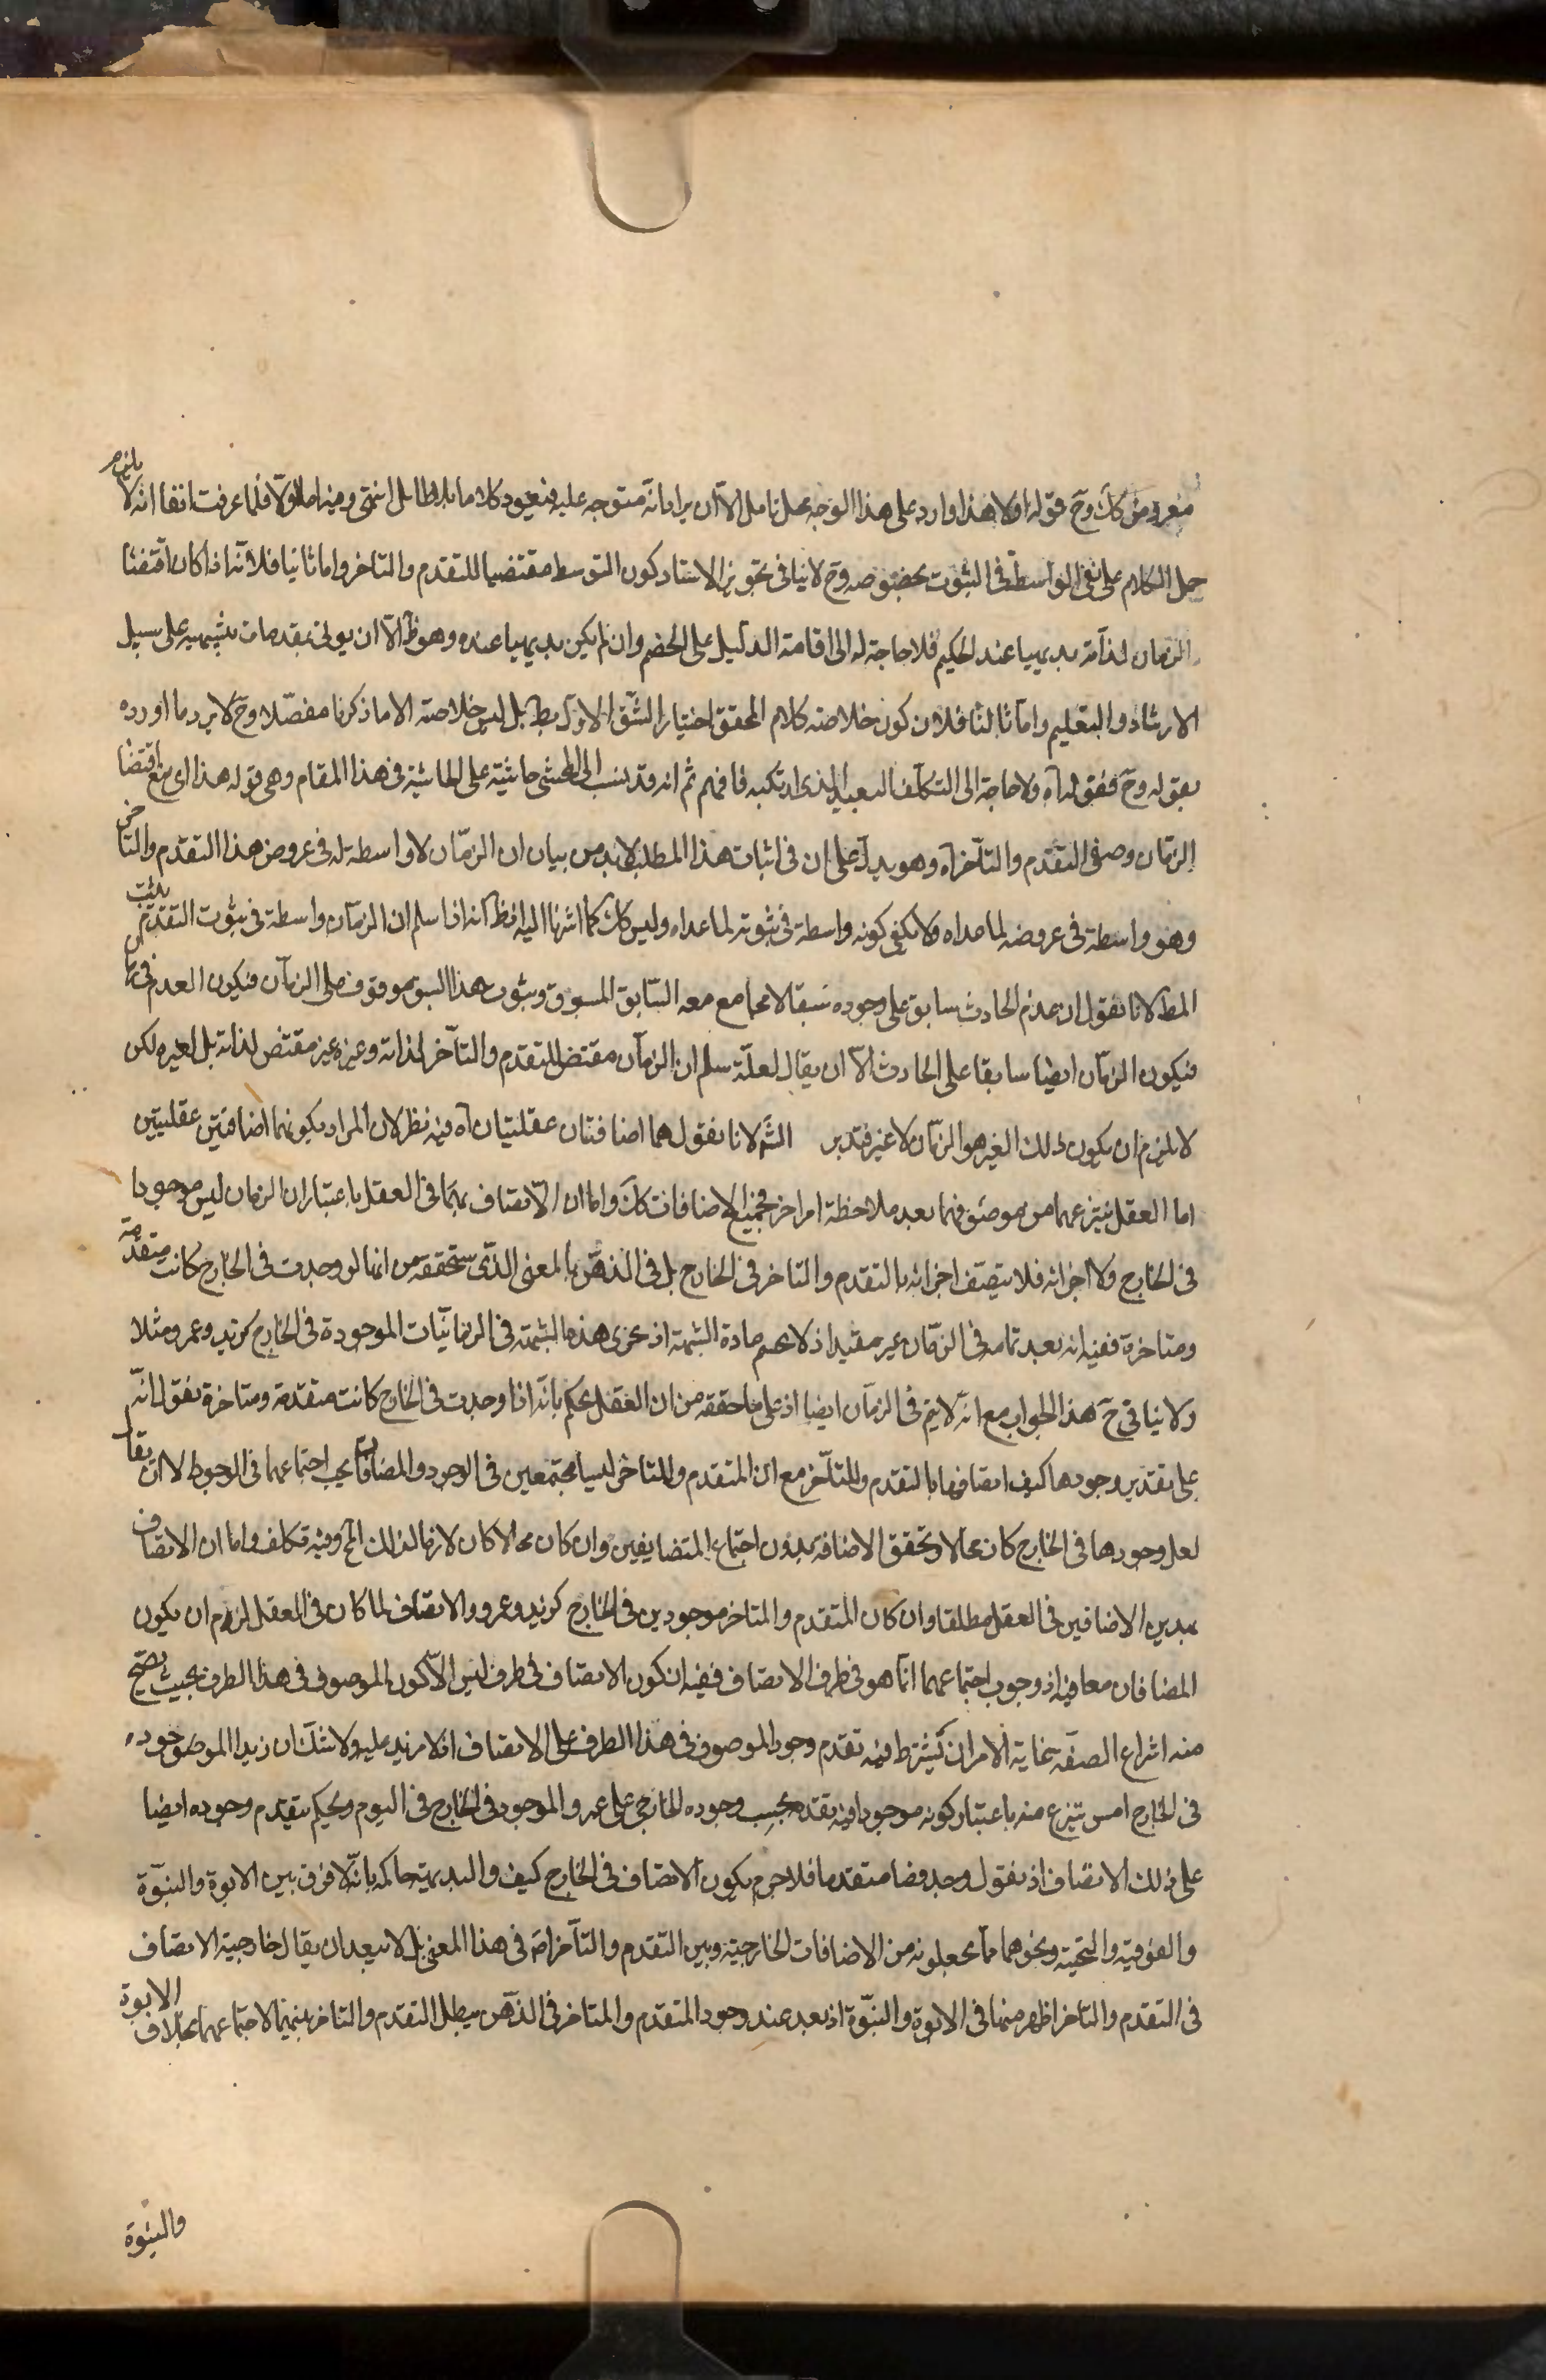 مفرد من كك وح قوله اولا هذا وارد على هذا الوجه محل تامل الا ان يراد انه متوجه عليه فيعود كلاما بلا طايل انتهى وفيه اما اولا فلما عرفت انفا انه لا يلزم
حمل الكلام على نفى الواسطة فى الثبوت بخصوصه وح لا ينافى تجويز الاستاد كون التوسط مقتضيا للتقدم والتاخر واما ثانيا فلانه اذا كان اقتضا
الزمان لذاته بديهيا عند الحكيم فلا حاجة له الى اقامة الدليل على الخصم وان لم يكن بديهيا عنده وهو ظ الا ان يولى بمقدمات تنبيهية على سبيل
الارشاد والتعليم واما ثالثا فلان كون خلاصة كلام المحقق اختيار الشق الاول بط بل ليس خلاصته الا ما ذكرنا مفصلا وح لا يرد ما اورده
بقوله وح فقوله اه ولا حاجة الى التكلف البعيد الذى ارتكبه فافهم ثم انه قد ينسب الى المحشى حاشية على الحاشية فى هذا المقام وهى قوله هذا اى منع اقتضا
الزمان وصفى التقدم والتاخر اه وهو يدل على ان فى اثبات هذا المطلب لابد من بيان ان الزمان لا واسطة له فى عروض هذا التقدم والتاخر
وهو واسطة فى عروضه لما عداه ولا يكفى كونه واسطة فى ثبوته لما عداه وليس كك كما اشرنا اليه اذ ظ انه اذا سلم ان الزمان واسطة فى ثبوت التقدم يثبت
المط لانا نقول ان عدم الحادث سابق على وجوده سبقا لا يجامع معه السابق المسبوق وثبوت هذا السبق موقوف على الزمان فيكون العدم فى زمان
فيكون الزمان ايضا سابقا على الحادث الا ان يقال لعله سلم ان الزمان مقتض للتقدم والتاخر لذاته وغيره غير مقتض لذاته بل لغيره لكن
لا يلزم ان يكون ذلك الغير هو الزمان لا غير فتدبر لانا نقول هما اضافتان عقليتان اه فيه نظر لان المراد بكونهما اضافتين عقليتين
اما العقل ينتزعهما من موصوفهما بعد ملاحظة امر اخر فجميع الاضافات كك واما ان الاتصاف بهما فى العقل باعتبار ان الزمان ليس موجودا
فى الخارج ولا اجزائه فلا يتصف اجزائه بالتقدم والتاخر فى الخارج بل فى الذهن بالمعنى الذى ستحققه من انها لو وجدت فى الخارج كانت متقدمة
ومتاخرة ففيه انه بعد تمامه فى الزمان غير مفيد اذ لا يحسم مادة الشبهة اذ يجرى هذه الشبهة فى الزمانيات الموجودة فى الخارج كزيد وعمرو مثلا
ولا ينافى ح هذا الجواب مع انه لا يتم فى الزمان ايضا اذ على ما حققه من ان العقل يحكم بانه اذا وجدت فى الخارج كانت متقدمة ومتاخرة نقول انه
على تقدير وجودها كيف اتصافها بالتقدم والتاخر مع ان المتقدم والمتاخر ليسا مجتمعين فى الوجود والمضافان يجب اجتماعهما فى الوجود الا ان يقال
لعل وجودها فى الخارج كان محالا وتحقق الاضافة بدون اجتماع المتضايفين وان كان محالا كان لازما لذلك المح وفيه تكلف واما ان الاتصاف
بهذين الاضافين فى العقل مطلقا وان كان المتقدم والمتاخر موجودين فى الخارج كزيد وعمرو والاتصاف لما كان فى العقل لزم ان يكون
المضافان معا فيه اذ وجوب اجتماعهما انما هو فى ظرف الاتصاف ففيه ان كون الاتصاف فى ظرف ليس الا كون الموصوف فى هذا الظرف بحيث يصح
منه انتزاع الصفة غاية الامر ان يشترط فيه تقدم وجود الموصوف فى هذا الظرف على الاتصاف اذ لا مزيد عليه ولا شك ان زيدا الموجود
فى الخارج امس ينتزع منه باعتبار كونه موجودا فيه تقدمه بحسب وجوده الخارجى على عمرو الموجود فى الخارج فى اليوم ويحكم بتقدم وجوده ايضا
على ذلك الاتصاف اذ نقول وجد فصار متقدما فلا جرم يكون الاتصاف فى الخارج كيف والبديهة حاكمة بانه لا فرق بين الابوة والبنوة
والفوقية والتحتية ونحوهما مما يجعلونه من الاضافات الخارجية وبين التقدم والتاخر اصلا فى هذا المعنى بل لا يبعد ان يقال خارجية الاتصاف
فى التقدم والتاخر اظهر منها فى الابوة والبنوة اذ بعد عند وجود المتقدم والمتاخر فى الذهن يبطل التقدم والتاخر بينهما لاجتماعهما بخلاف الابوة
والبنوة